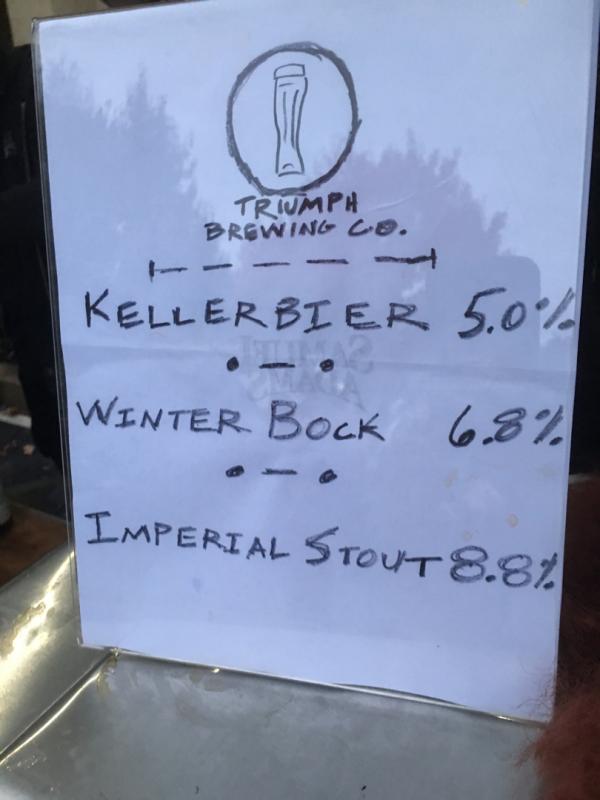 TRIUMPH
BREWING CO.
KELLERBIER 5.0%
SAMUEL
ADAMS
WINTER BOCK 6.8%
IMPERIAL STOUT 8.8%